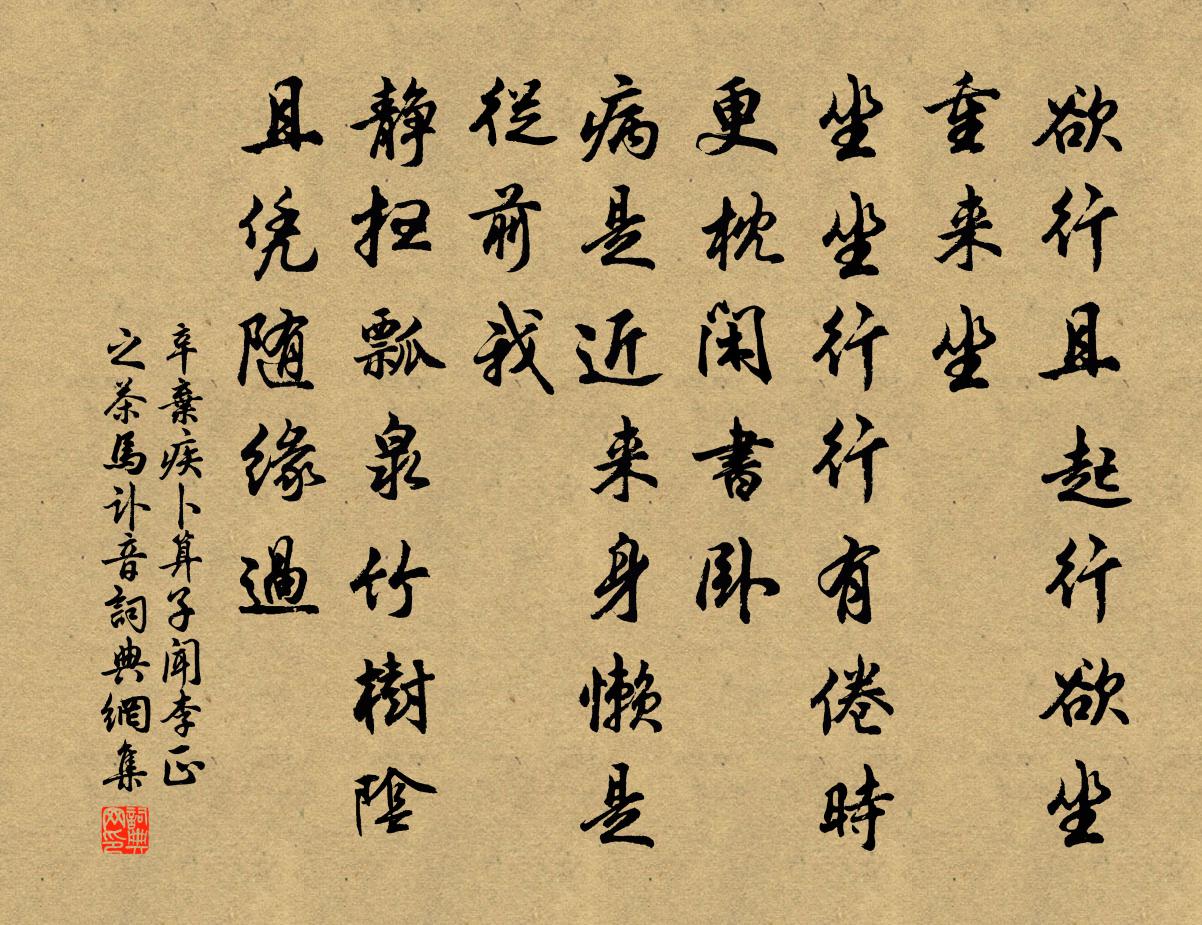 欲行且起行欲坐
重来坐
坐坐行行有倦時
更枕閑書卧
病是近来身懶是
從前我
静扫瓢泉竹樹陰
且凭随緣過
辛棄疾卜算子聞李正
之茶馬訃音詞典網集
詞典
网印